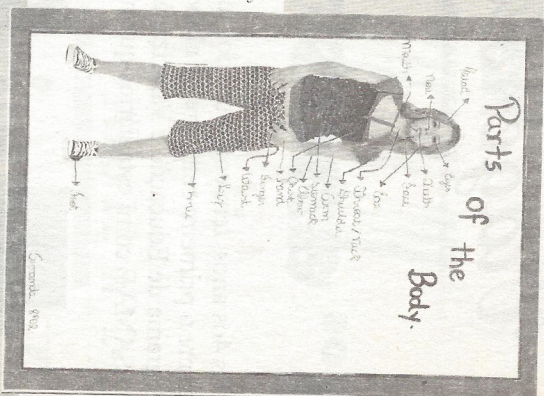 Parts
of the
Body.
Head
Nose
Mouth
Eye
Teeth
Face
Ear
Throat / Neck
Shoulder
Arm
Stomach
Elbow
Chest
Hand
Finger
Waist
Leg
Knee
Foot